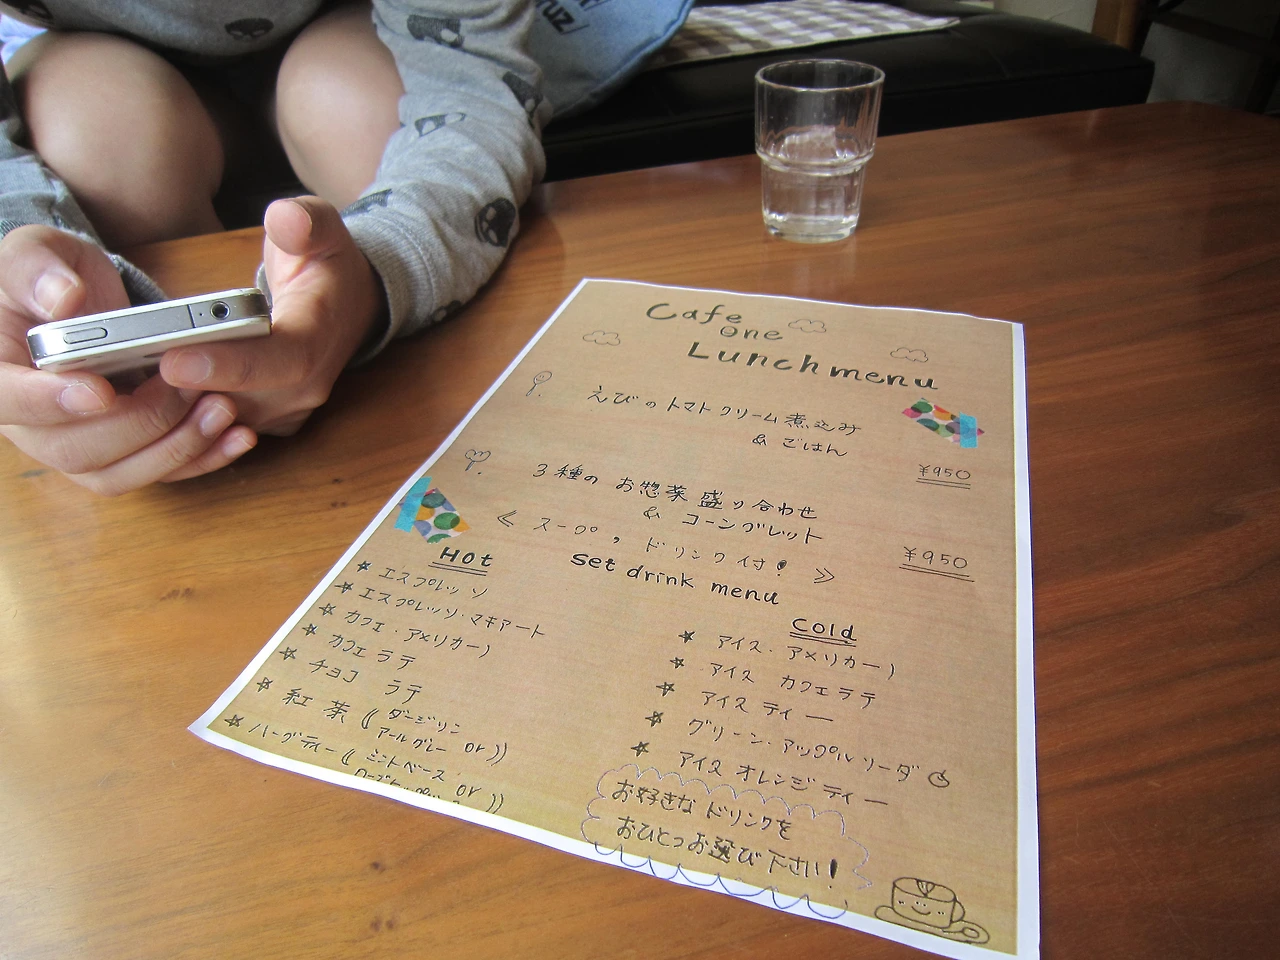 Cafe
one
Lunch menu
えびのトマトクリーム煮込み
& ごはん
¥950
3種の お惣菜 盛り合わせ
& コーンブレット
¥950
≪ スープ, ドリンク付! ≫
set drink menu
Hot
☆ エスプレッソ
☆ エスプレッソ・マキアート
☆ カフェ・アメリカーノ
☆ カフェ ラテ
☆ チョコ ラテ
☆ 紅茶 (( ダージリン
アールグレー or ))
☆ ハーブティー (( ミントベース or
))
Cold
☆ アイス・アメリカーノ
☆ アイス カフェラテ
☆ アイス ティー
☆ グリーン・アップルソーダ
☆ アイス オレンジ ティー
お好きな ドリンクを
おひとつお選び下さい!